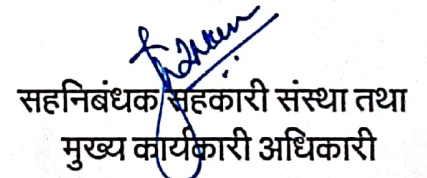 सहनिबंधक सहकारी संस्था तथा
मुख्य कार्यकारी अधिकारी